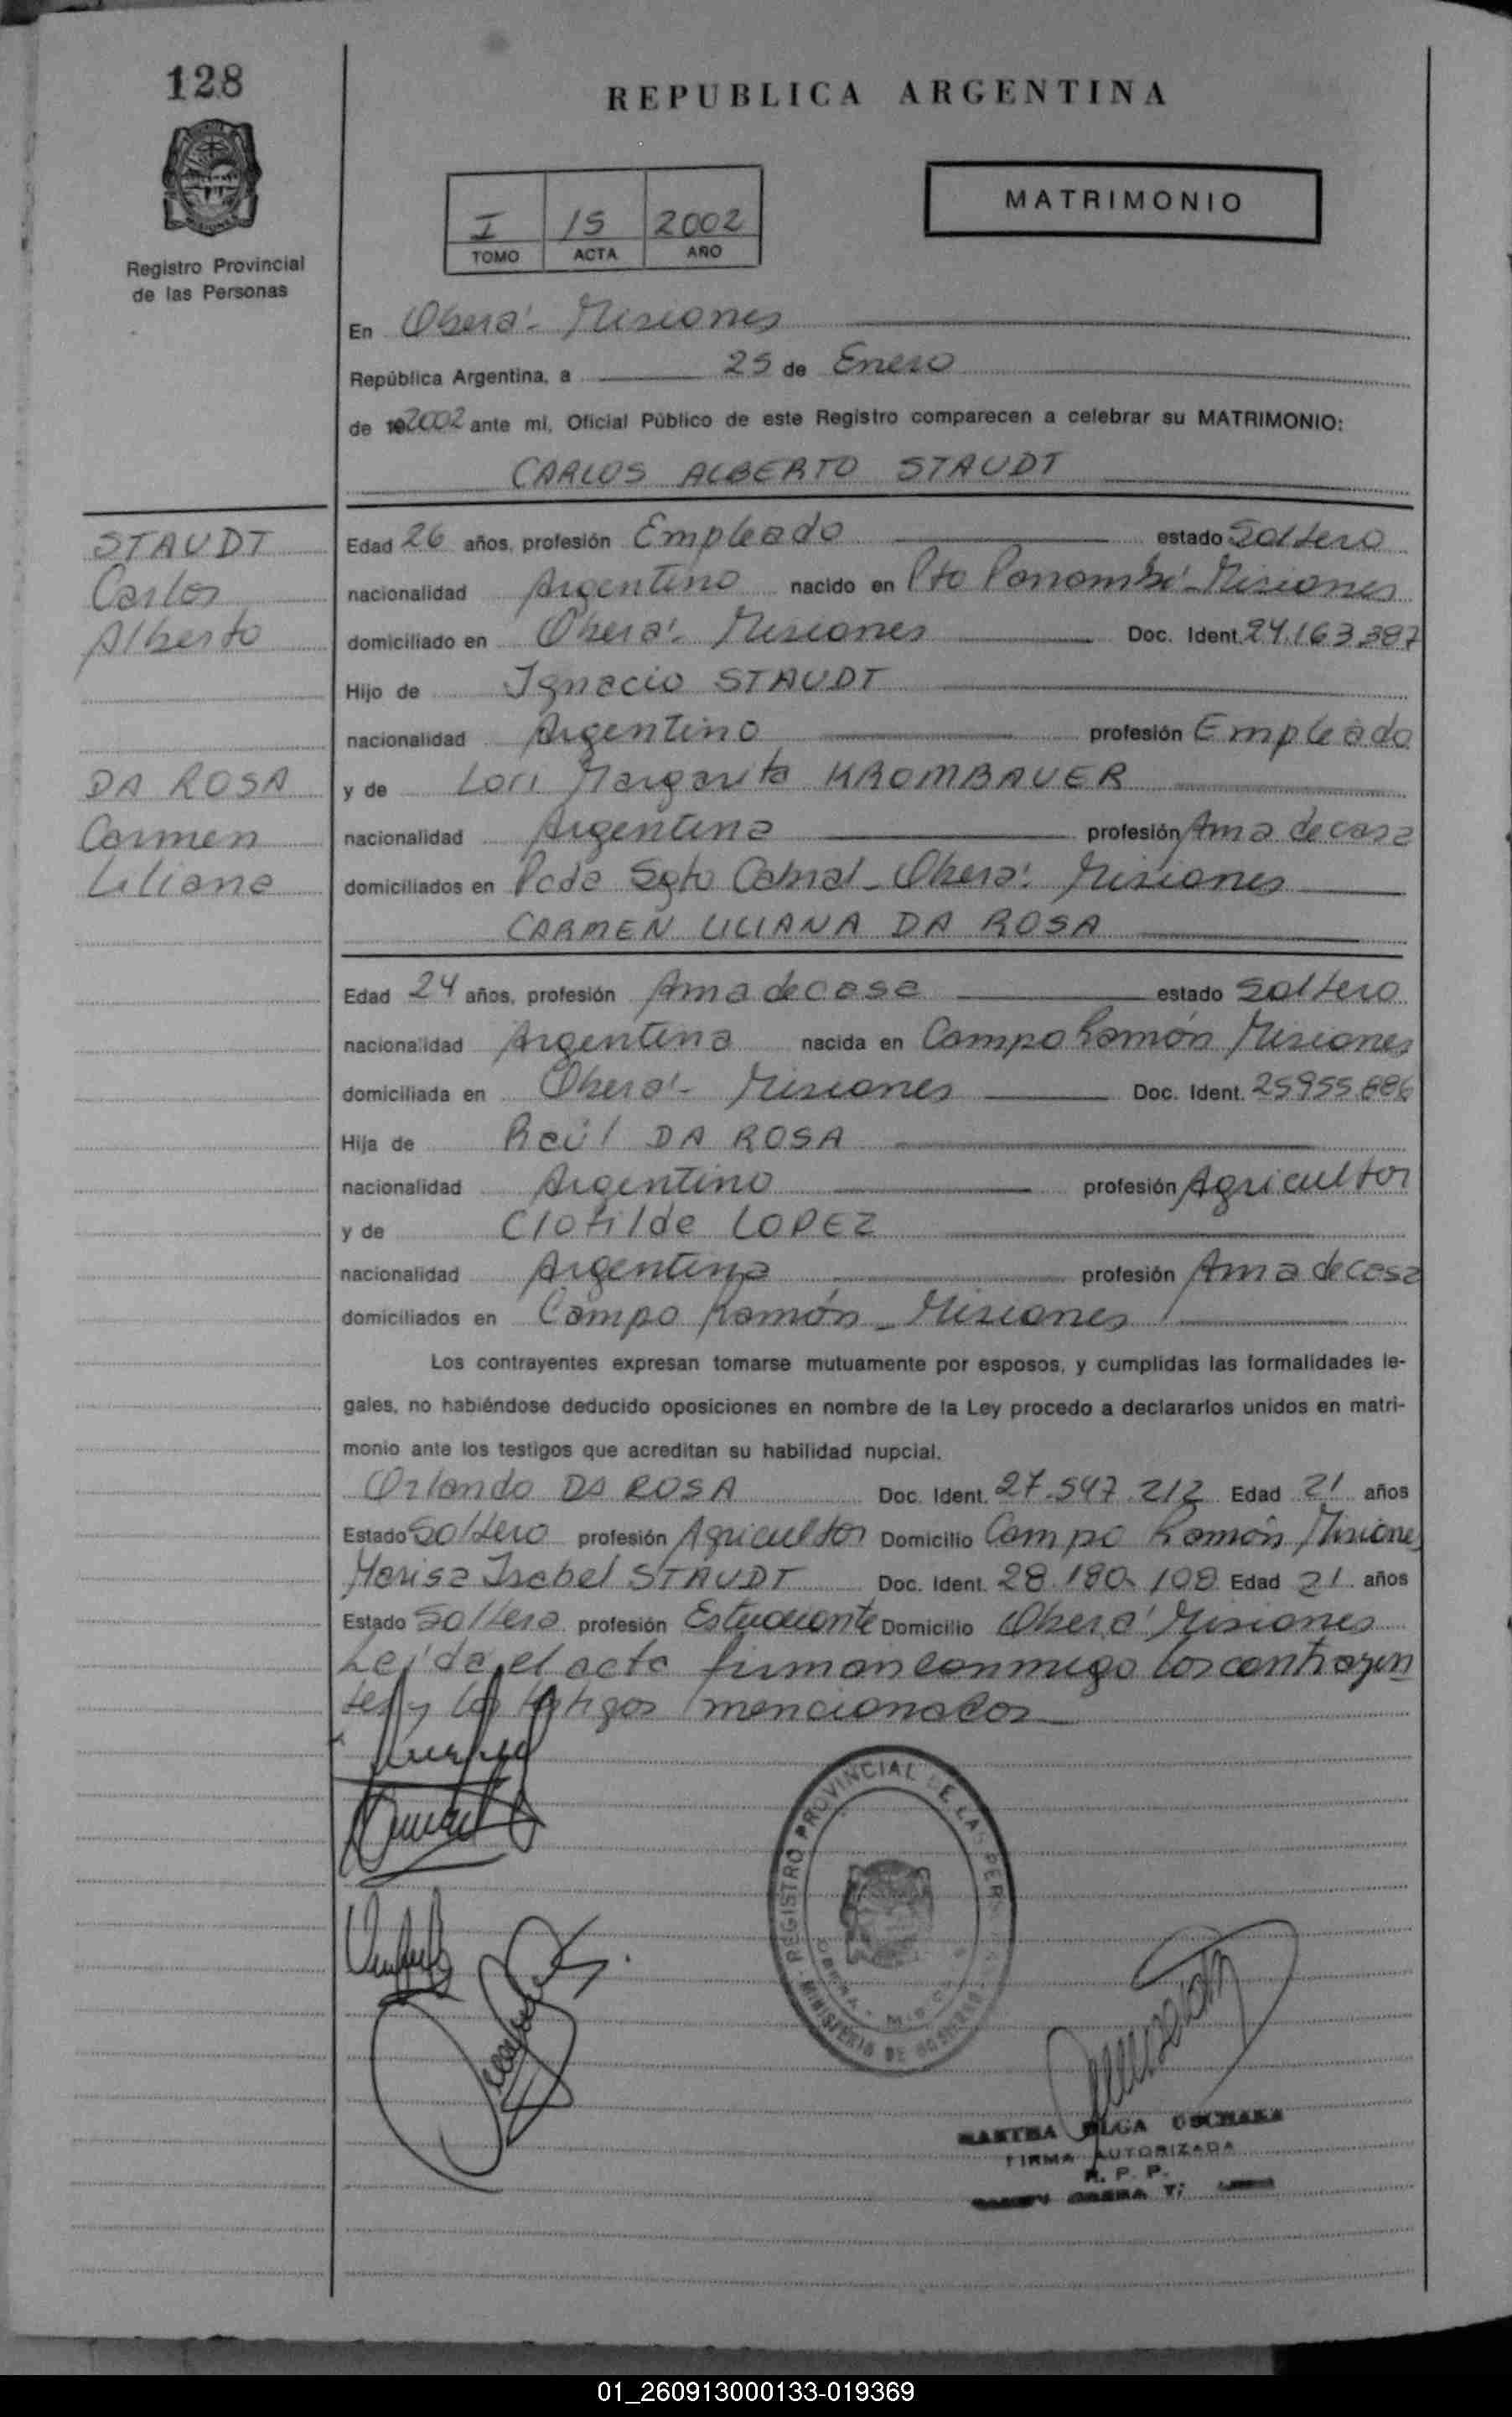 128
REPUBLICA ARGENTINA
MATRIMONIO
I 15 2002
TOMO ACTA AÑO
Registro Provincial
de las Personas
En Oberá - Misiones
República Argentina, a 25 de Enero
de 2002 ante mi, Oficial Público de este Registro comparecen a celebrar su MATRIMONIO:
CARLOS ALBERTO STAUDT
STAUDT
Carlos
Alberto
Edad 26 años, profesión Empleado estado Soltero
nacionalidad Argentino nacido en Pto Panambí - Misiones
domiciliado en Oberá - Misiones Doc. Ident. 24.163.387
Hijo de Ignacio STAUDT
nacionalidad Argentino profesión Empleado
DA ROSA
Carmen
Liliana
y de Lori Margarita KROMBAUER
nacionalidad Argentina profesión Ama de casa
domiciliados en Pcda Sgto Cabral - Oberá - Misiones
CARMEN LILIANA DA ROSA
Edad 24 años, profesión Ama de casa estado Soltero
nacionalidad Argentina nacida en Campo Ramón Misiones
domiciliada en Oberá - Misiones Doc. Ident. 25955.886
Hija de Raúl DA ROSA
nacionalidad Argentino profesión Agricultor
y de Clotilde LOPEZ
nacionalidad Argentina profesión Ama de casa
domiciliados en Campo Ramón - Misiones
Los contrayentes expresan tomarse mutuamente por esposos, y cumplidas las formalidades le-
gales, no habiéndose deducido oposiciones en nombre de la Ley procedo a declararlos unidos en matri-
monio ante los testigos que acreditan su habilidad nupcial.
Orlando DA ROSA Doc. Ident. 27.547.212 Edad 21 años
Estado Soltero profesión Agricultor Domicilio Campo Ramón Misiones
Marisa Isabel STAUDT Doc. Ident. 28.180.108 Edad 21 años
Estado Soltera profesión Estudiante Domicilio Oberá Misiones
Leída el acta firman conmigo los contrayen
tes y los testigos mencionados
REGISTRO PROVINCIAL DE LAS PER
MINISTERIO DE GOBIERNO
MARTHA OLGA
FIRMA AUTORIZADA
R. P. P.
01_260913000133-019369